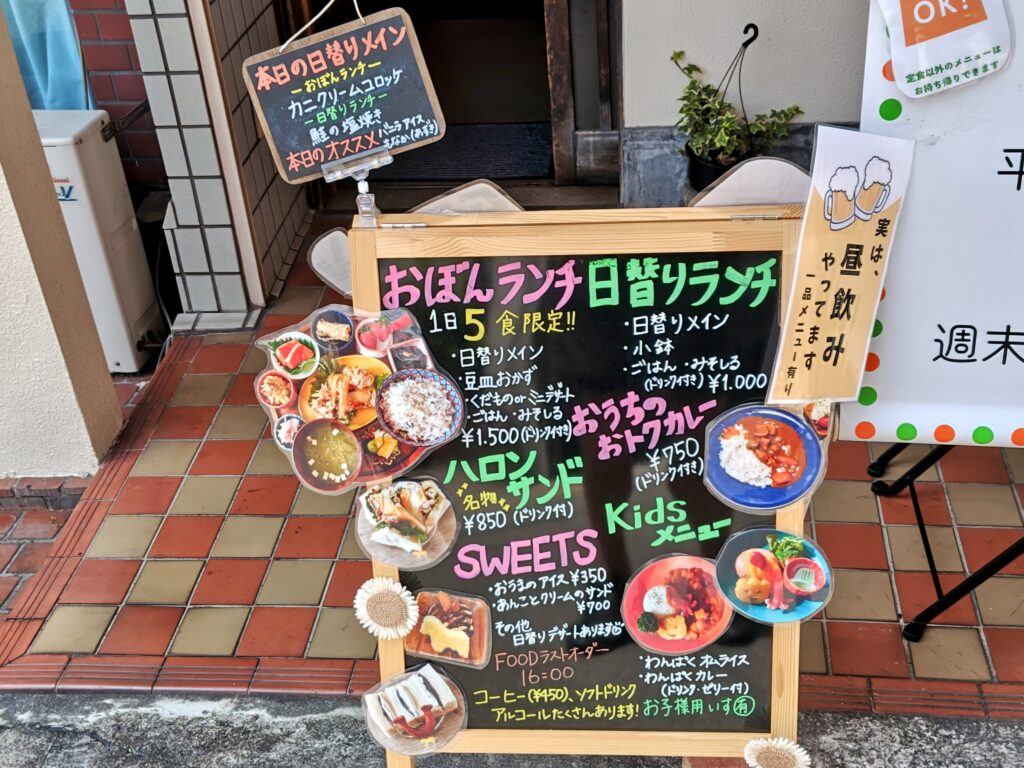 本日の日替りメイン
ーおぼんランチー
カニクリームコロッケ
ー日替りランチー
鮭の塩焼き
本日のオススメ
バニラアイス
もなか(あずき)
OK!
定食以外のメニューは
お持ち帰りできます
実は、
昼飲み
やってます
一品メニュー有り
週末
おぼんランチ
1日5食限定!!
・日替りメイン
・豆皿おかず
・くだもの or ミニデザート
・ごはん・みそしる
¥1.500(ドリンク付き)
日替りランチ
・日替りメイン
・小鉢
・ごはん・みそしる
(ドリンク付き) ¥1.000
おうちの
おトクカレー
¥750
(ドリンク付き)
ハロン
サンド
名物
¥850(ドリンク付)
Kids
メニュー
SWEETS
・おうまのアイス ¥350
・あんことクリームのサンド
¥700
その他
日替りデザートあります
FOODラストオーダー
16:00
コーヒー(¥450)、ソフトドリンク
アルコールたくさんあります!
・わんぱくオムライス
・わんぱくカレー
(ドリンク・ゼリー付)
お子様用いす有